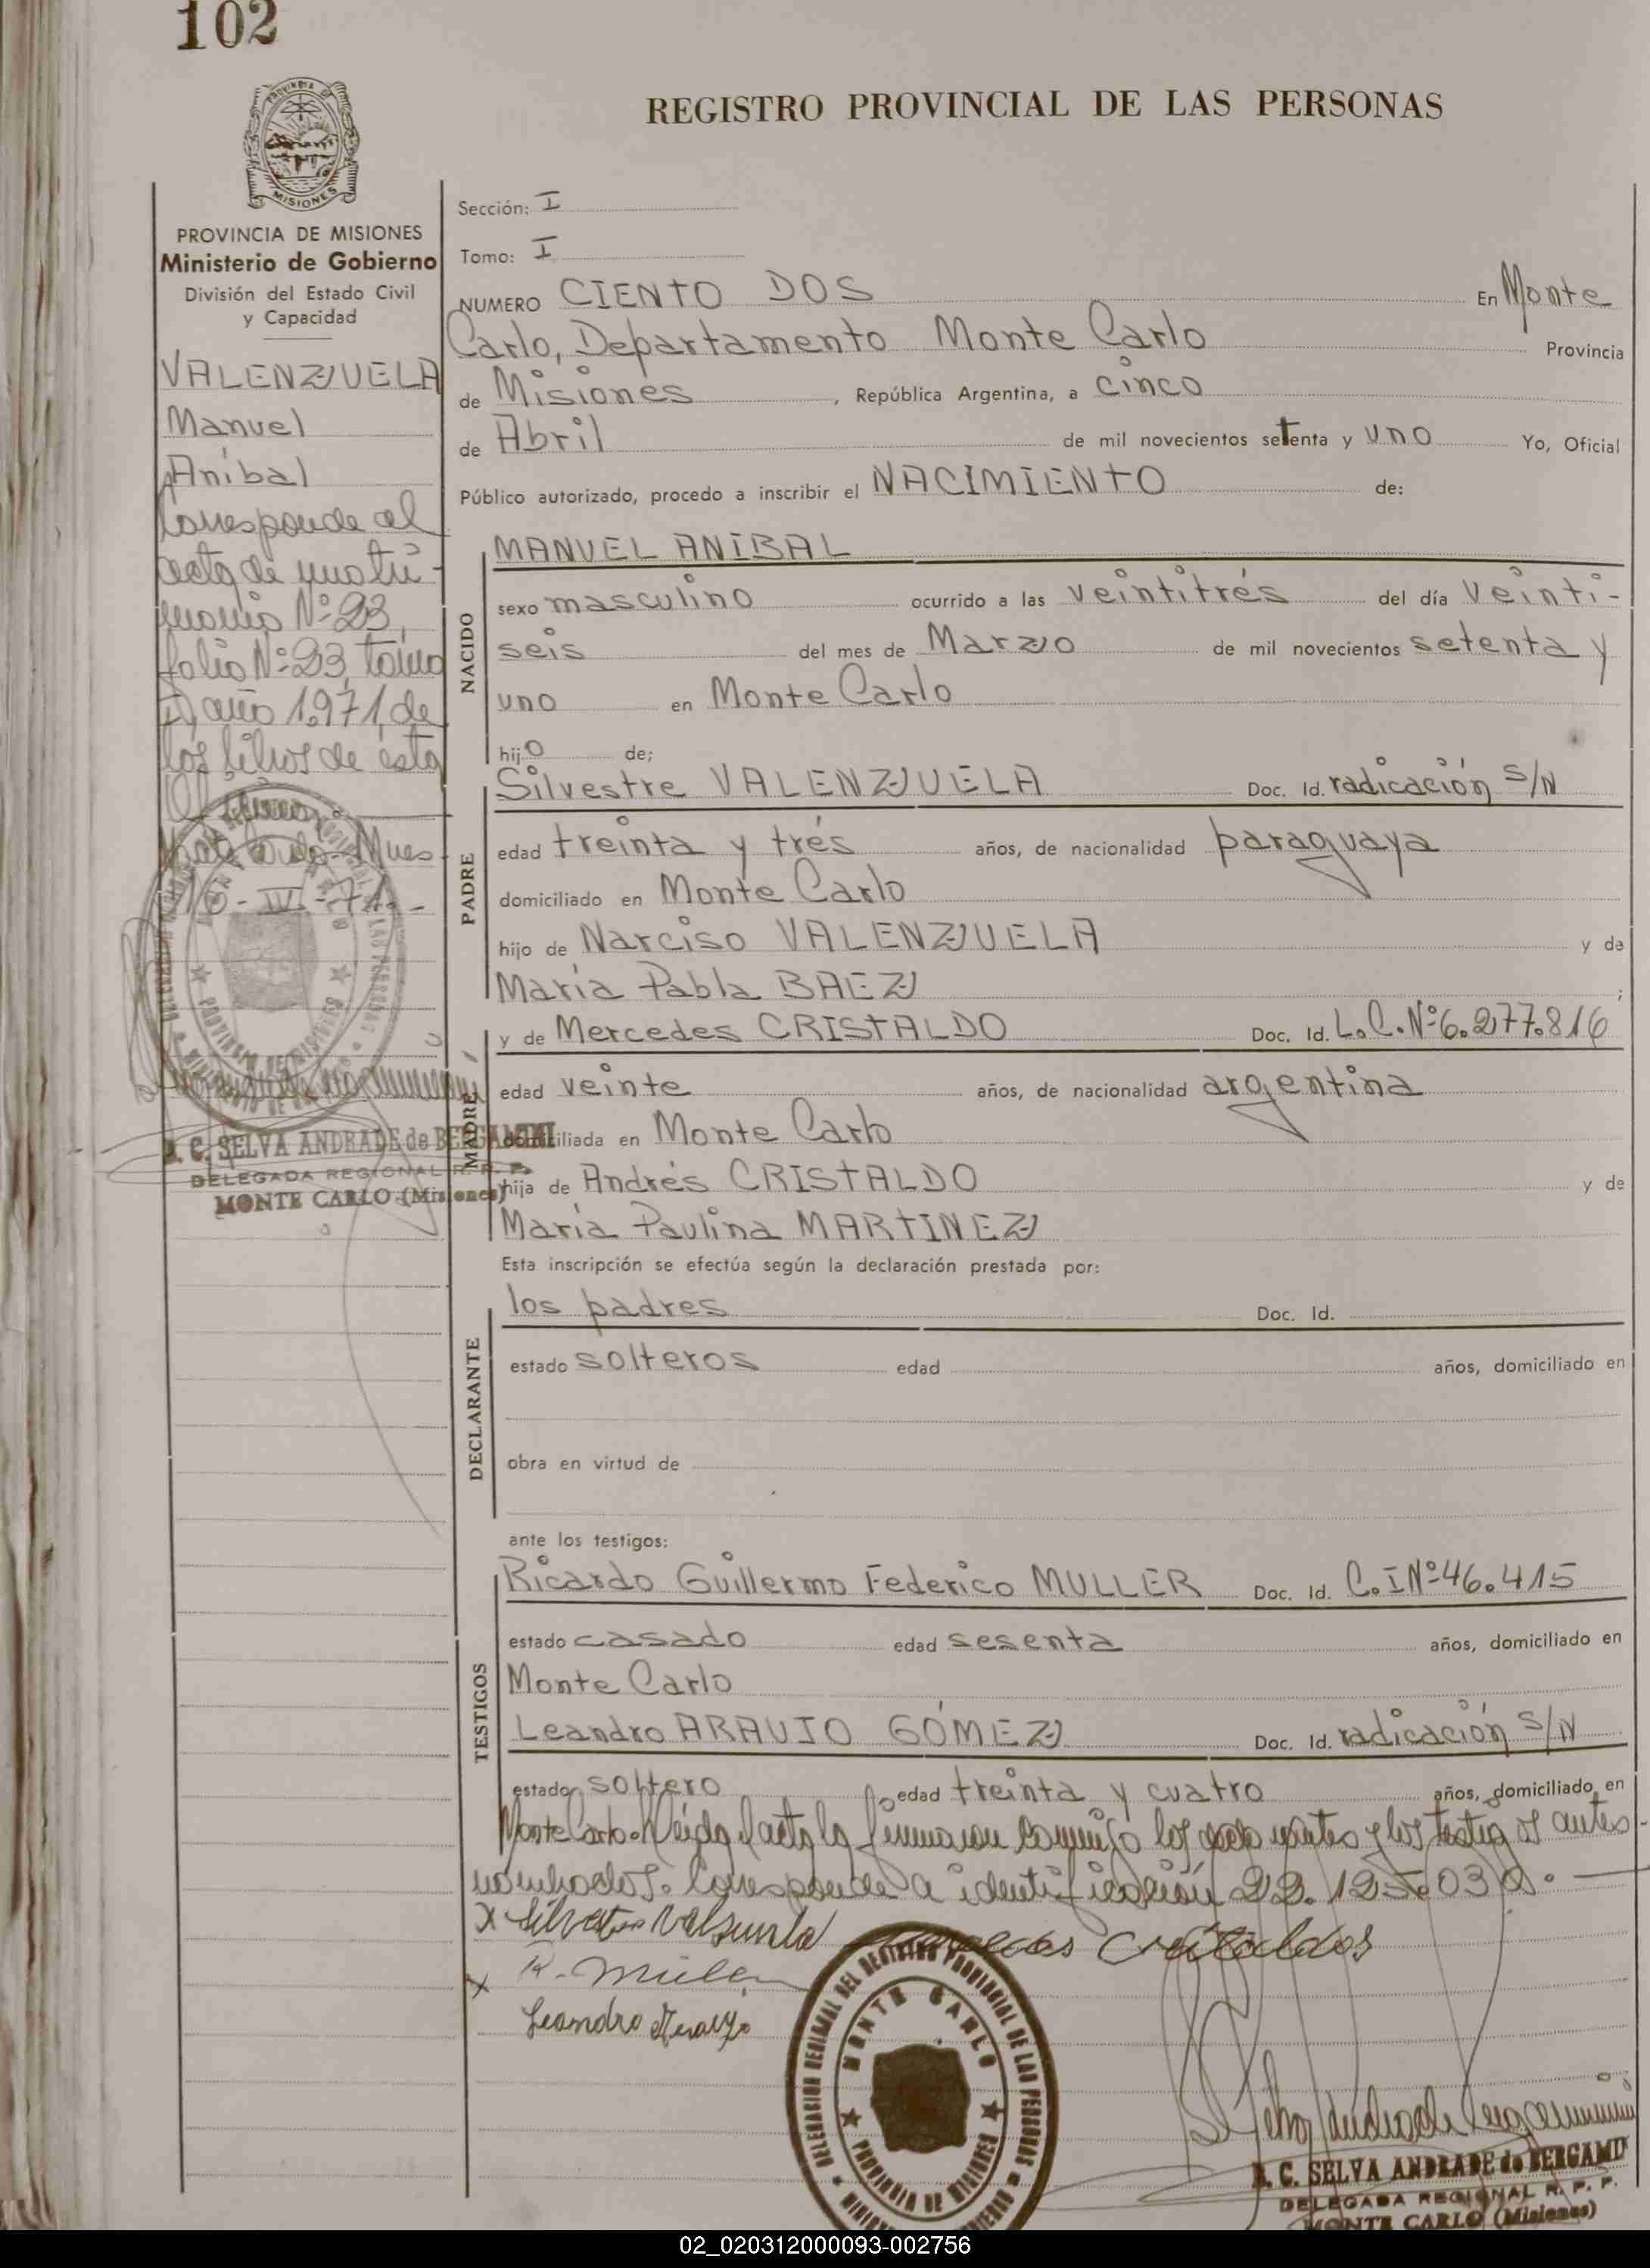 102
REGISTRO PROVINCIAL DE LAS PERSONAS
MISIONES
PROVINCIA DE MISIONES
Ministerio de Gobierno
División del Estado Civil
y Capacidad
VALENZUELA
Manuel
Aníbal
Corresponde al
acta de matri-
monio Nº 23,
folio Nº 23, tomo
I, año 1.971, de
los libros de esta
Oficina.
16-IV-71.-
S. C. SELVA ANDRADE de BERGAMINI
DELEGADA REGIONAL R. P. P.
MONTE CARLO (Misiones)
Sección: I
Tomo: I
NUMERO CIENTO DOS En Monte
Carlo, Departamento Monte Carlo Provincia
de Misiones, República Argentina, a cinco
de Abril de mil novecientos setenta y uno Yo, Oficial
Público autorizado, procedo a inscribir el NACIMIENTO de:
NACIDO
MANUEL ANIBAL
sexo masculino ocurrido a las veintitrés del día veinti-
seis del mes de Marzo de mil novecientos setenta y
uno en Monte Carlo
hijo de;
PADRE
Silvestre VALENZUELA Doc. Id. radicación S/N
edad treinta y trés años, de nacionalidad paraguaya
domiciliado en Monte Carlo
hijo de Narciso VALENZUELA y de
María Pabla BAEZ ;
MADRE
y de Mercedes CRISTALDO Doc. Id. L.C.Nº6.277.816
edad veinte años, de nacionalidad argentina
domiciliada en Monte Carlo
hija de Andrés CRISTALDO y de
María Paulina MARTINEZ
Esta inscripción se efectúa según la declaración prestada por:
DECLARANTE
los padres Doc. Id.
estado solteros edad años, domiciliado en
obra en virtud de
ante los testigos:
TESTIGOS
Ricardo Guillermo Federico MULLER Doc. Id. C.INº46.415
estado casado edad sesenta años, domiciliado en
Monte Carlo
Leandro ARAUJO GÓMEZ Doc. Id. radicación S/N
estado soltero edad treinta y cuatro años, domiciliado en
Monte Carlo. Leída el acta la firmaron conmigo los y los testigos antes-
nombrados. Corresponde a identificación
x Silvestre Valenzuela Mercedes Cristaldos
x R. Müller
Leandro Araujo
DELEGACION REGIONAL DEL REGISTRO PROVINCIAL DE LAS PERSONAS
MONTE CARLO
PROVINCIA DE MISIONES
S. C. SELVA ANDRADE de BERGAMINI
DELEGADA REGIONAL R. P. P.
MONTE CARLO (Misiones)
02_020312000093-002756